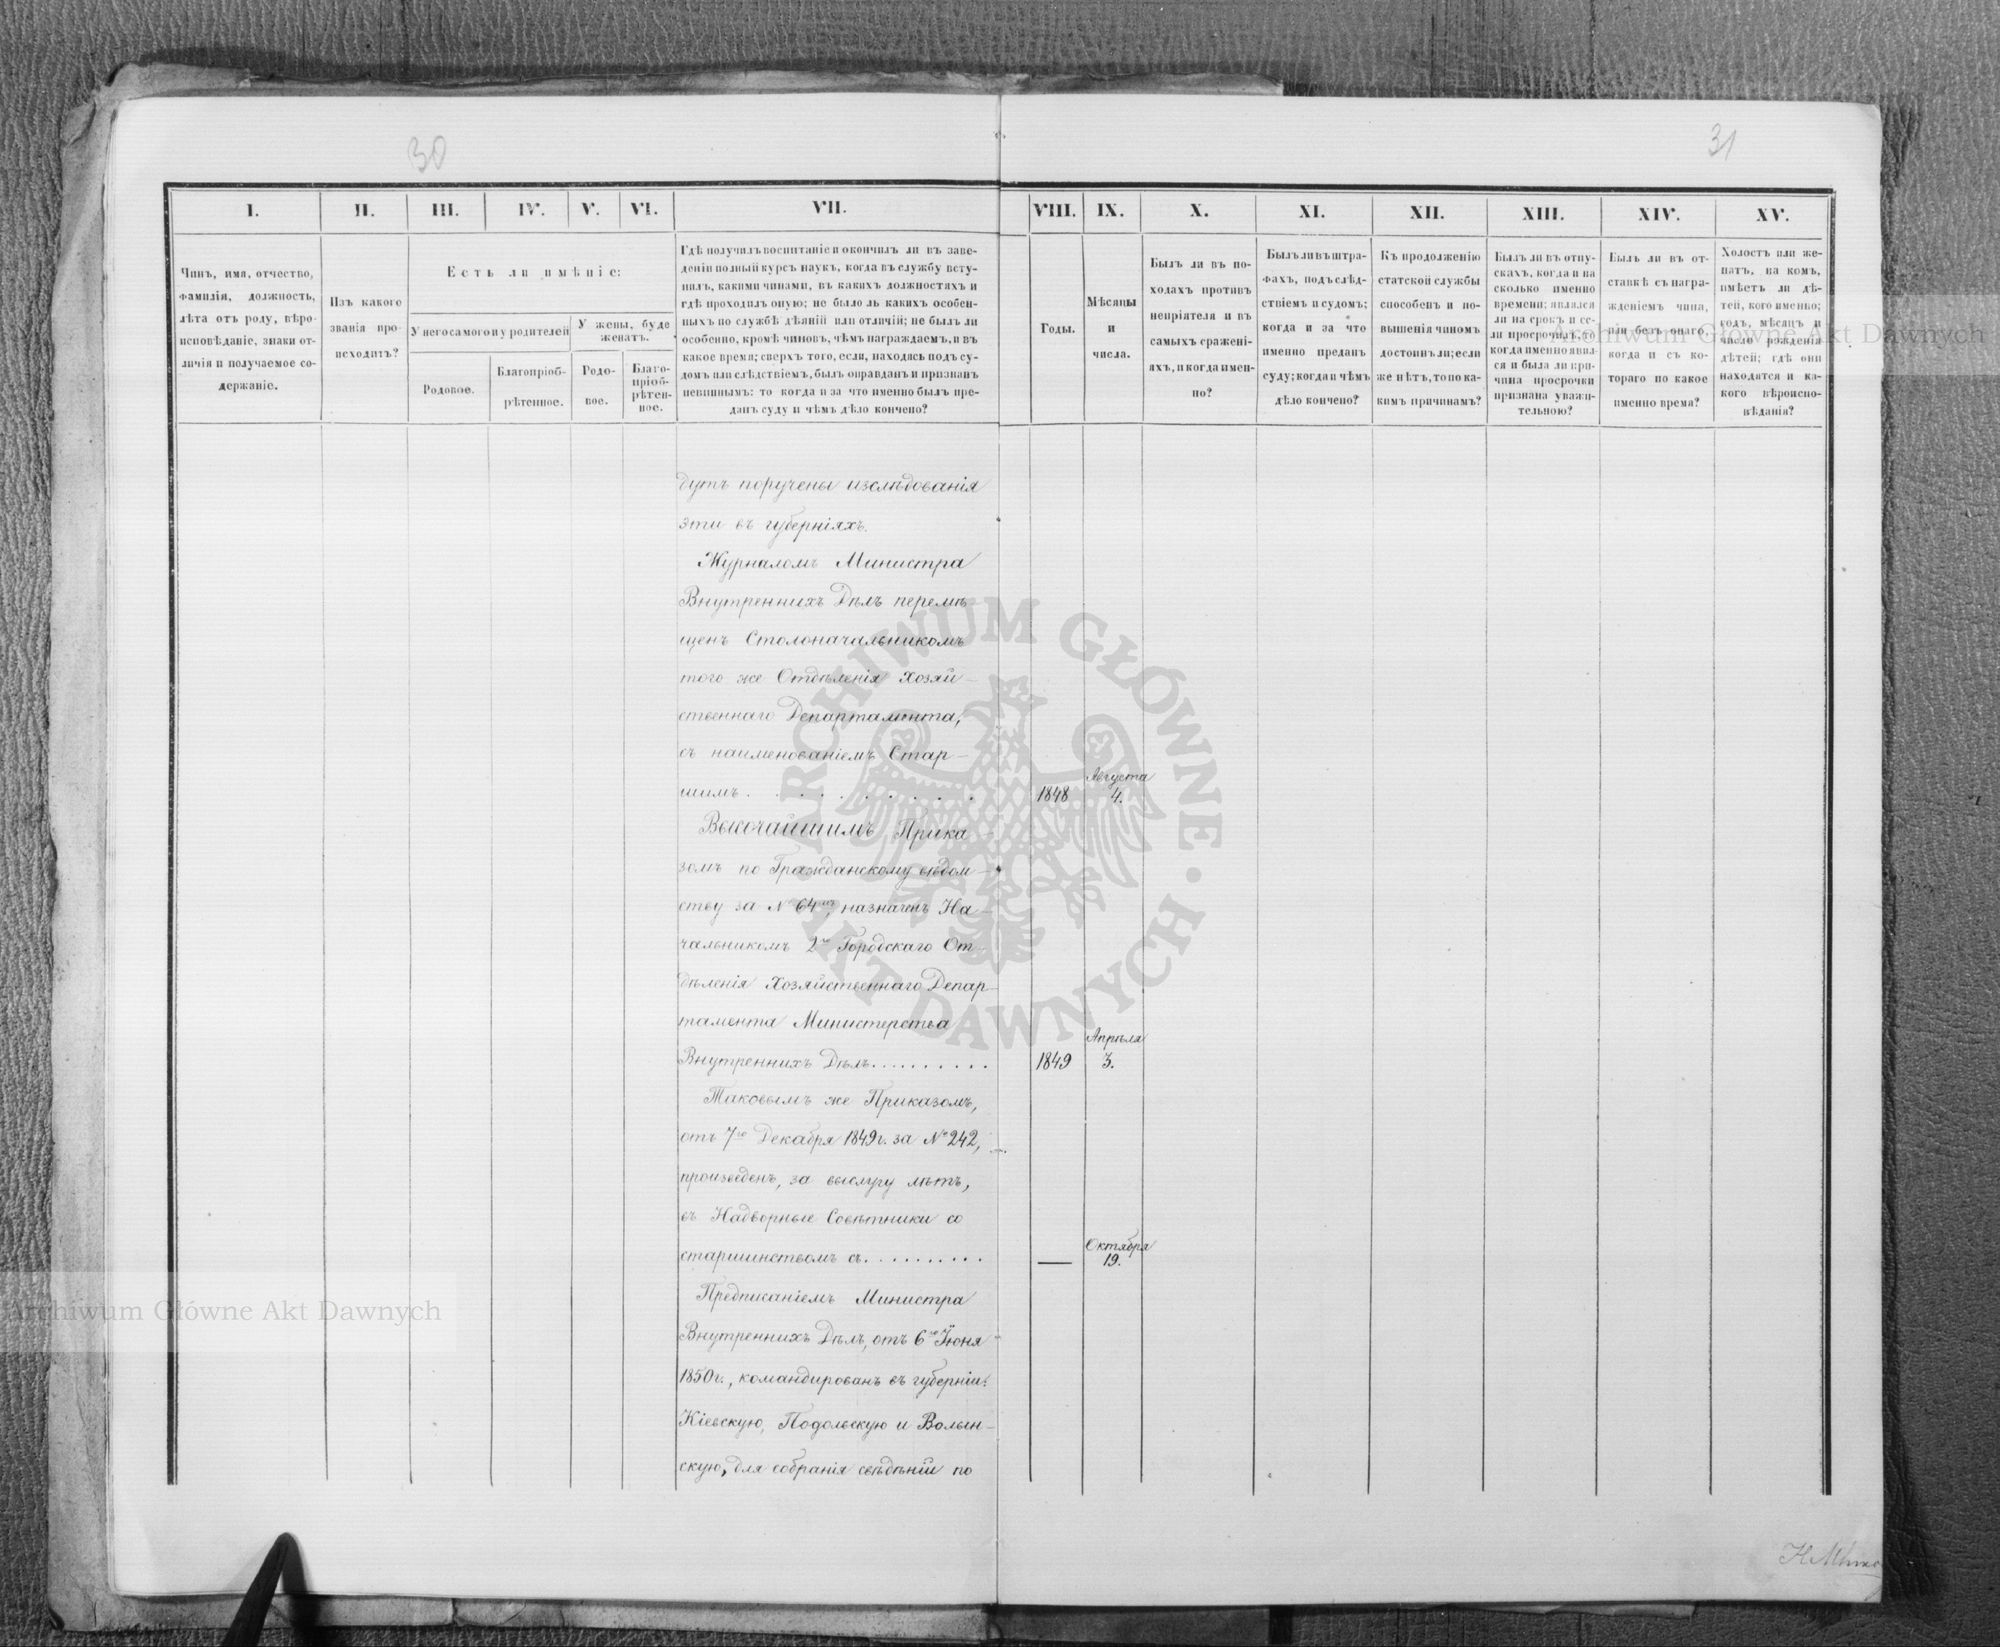 30
31
I.
II.
III.
IV.
V.
VI.
VII.
VIII.
IX.
X.
XI.
XII.
XIII.
XIV.
XV.
Чинъ, имя, отчество,
фамилія, должность,
лѣта отъ роду, вѣро-
исповѣданіе, знаки от-
личія и получаемое со-
держаніе.
Изъ какого
званія про-
исходитъ?
Есть ли имѣніе:
У него самого и у родителей
У жены, буде
женатъ.
Родовое.
Благопріоб-
рѣтенное.
Родо-
вое.
Благо-
пріоб-
рѣтен-
ное.
Гдѣ получилъ воспитаніе и окончилъ ли въ заве-
деніи полный курсъ наукъ, когда въ службу всту-
пилъ, какими чинами, въ какихъ должностяхъ и
гдѣ проходилъ оную; не было ль какихъ особен-
ныхъ по службѣ дѣяній или отличій; не былъ ли
особенно, кромѣ чиновъ, чѣмъ награждаемъ, и въ
какое время; сверхъ того, если, находясь подъ су-
домъ или слѣдствіемъ, былъ оправданъ и признанъ
невиннымъ: то когда и за что именно былъ пре-
данъ суду и чѣмъ дѣло кончено?
Годы.
Мѣсяцы
и
числа.
Былъ ли въ по-
ходахъ противъ
непріятеля и въ
самыхъ сражені-
яхъ, и когда имен-
но?
Былъ ли въ штра-
фахъ, подъ слѣд-
ствіемъ и судомъ;
когда и за что
именно преданъ
суду; когда и чѣмъ
дѣло кончено?
Къ продолженію
статской службы
способенъ и по-
вышенія чиномъ
достоинъ ли; если
же нѣтъ, то по ка-
кимъ причинамъ?
Былъ ли въ отпу-
скахъ, когда и на
сколько именно
времени; являлся
ли на срокъ и ес-
ли просрочилъ, то
когда именно явил-
ся и была ли при-
чина просрочки
признана уважи-
тельною?
Былъ ли въ от-
ставкѣ съ награ-
жденіемъ чина,
или безъ онаго,
когда и съ ко-
тораго по какое
именно время?
Холостъ или же-
натъ, на комъ,
имѣетъ ли дѣ-
тей, кого именно;
годъ, мѣсяцъ и
число рожденія
дѣтей; гдѣ они
находятся и ка-
кого вѣроиспо-
вѣданія?
дутъ поручены изслѣдованія
эти въ губерніяхъ.
Журналомъ Министра
Внутреннихъ Дѣлъ перемѣ
щенъ Столоначальникомъ
того же Отдѣленія Хозяй-
ственнаго Департамента,
съ наименованіемъ Стар-
шимъ . . . . . . . . . .
1848
Августа
4.
Высочайшимъ Прика-
зомъ по Гражданскому вѣдом-
ству за № 64мъ, назначенъ На-
чальникомъ 2го Городскаго От-
дѣленія Хозяйственнаго Депар-
тамента Министерства
Внутреннихъ Дѣлъ . . . . . . . . . .
1849
Апрѣля
3.
Таковымъ же Приказомъ,
отъ 7го Декабря 1849г. за № 242,
произведенъ, за выслугу лѣтъ,
въ Надворные Совѣтники со
старшинствомъ съ . . . . . . . . . .
—
Октября
19.
Предписаніемъ Министра
Внутреннихъ Дѣлъ, отъ 6го Іюня
1850г., командированъ въ губерніи:
Кіевскую, Подольскую и Волын-
скую, для собранія свѣдѣній по
ARCHIWUM GŁÓWNE AKT DAWNYCH
Archiwum Główne Akt Dawnych
Archiwum Główne Akt Dawnych